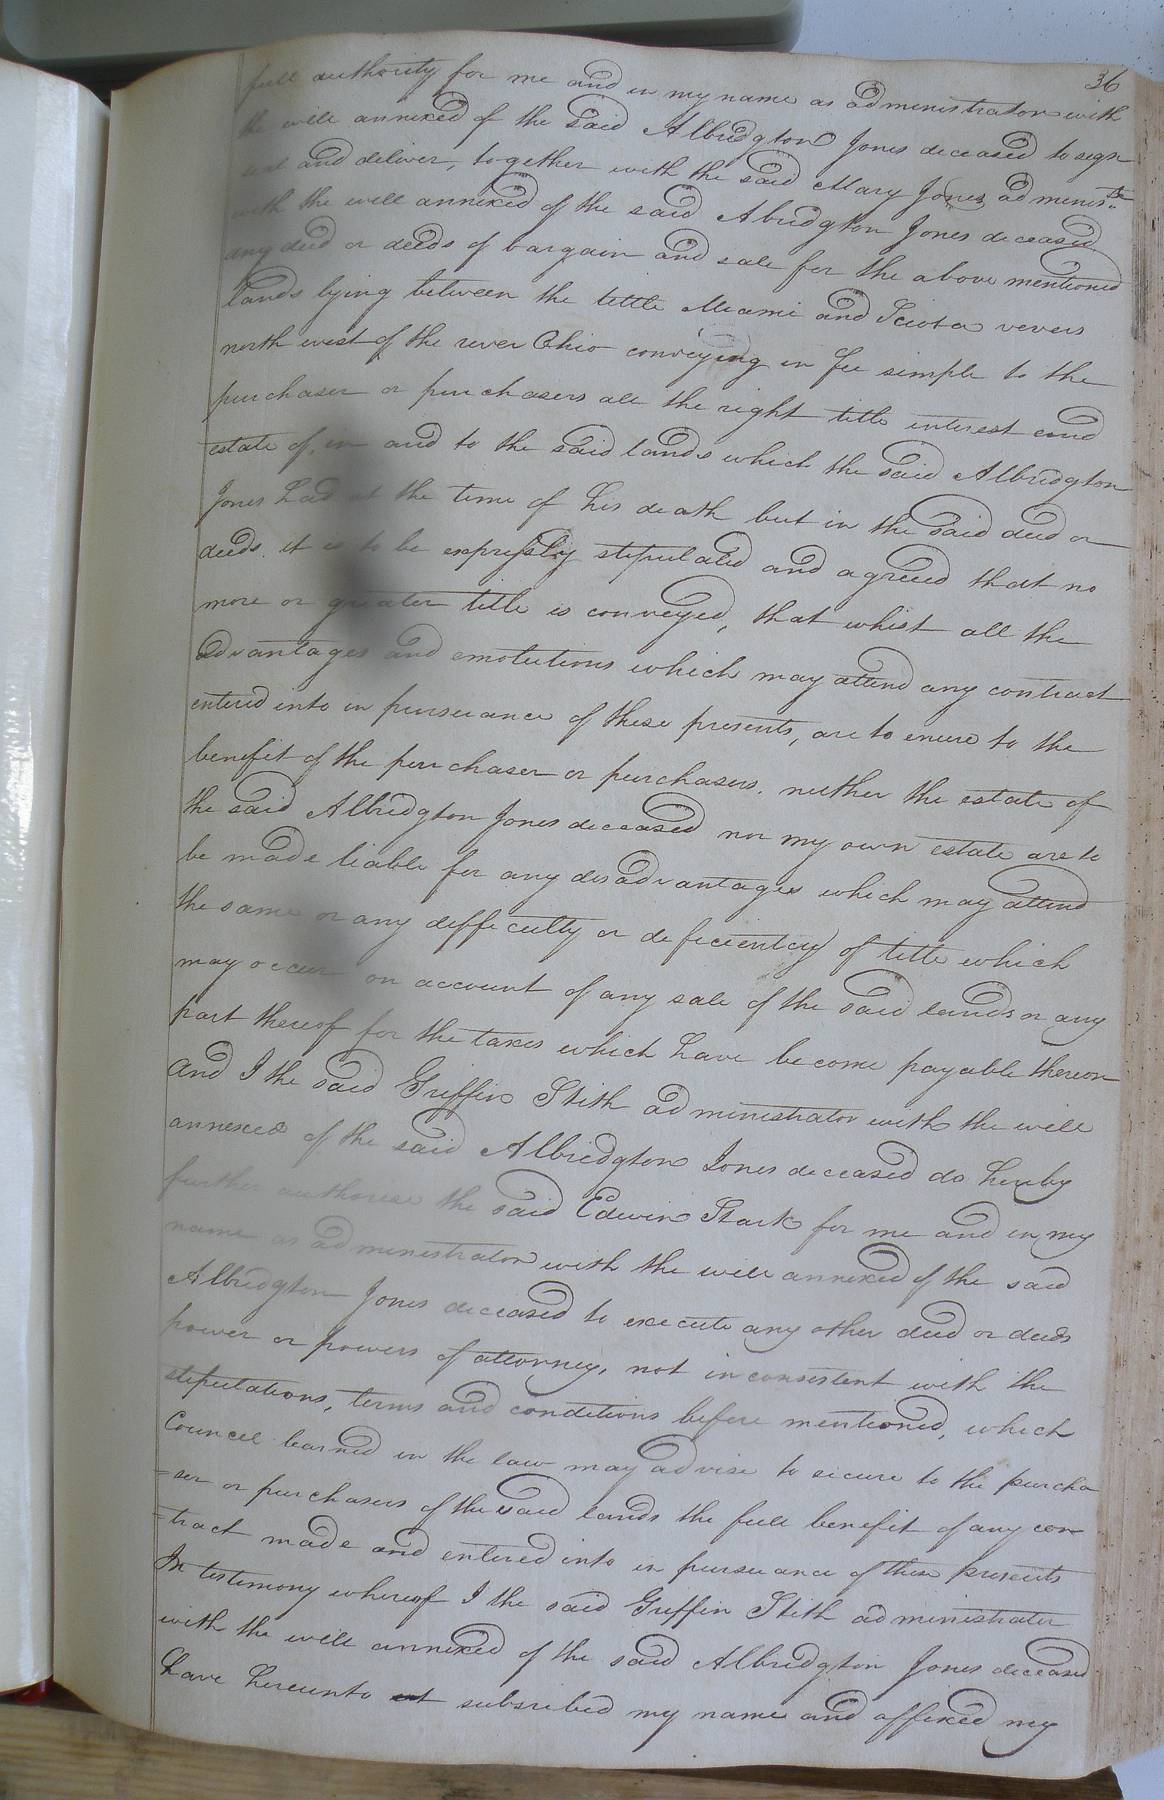 36
full authority for me and in my name as administrator with
the will annexed of the said Albridgton Jones deceased to sign
seal and deliver, together with the said Mary Jones adminis:tx
with the will annexed of the said Abridgton Jones deceased
any deed or deeds of bargain and sale for the above mentioned
lands lying between the little Miami and Sciota rivers
north west of the river Ohio conveying in fee simple to the
purchaser or purchasers all the right title interest and
estate of, in and to the said lands which the said Albridgton
Jones had at the time of his death but in the said deed or
deeds it is to be expressly stipulated and agreed that no
more or greater title is conveyed, that whist all the
advantages and emolutions which may attend any contract
entered into in pursuance of these presents, are to enure to the
benefit of the purchaser or purchasers. neither the estate of
the said Albridgton Jones deceased nor my own estate are to
be made liable for any disadvantages which may attend
the same or any difficulty or deficientcy of title which
may occur on account of any sale of the said lands or any
part thereof for the taxes which have become payable thereon
and I the said Griffin Stith administrator with the will
annexed of the said Albridgton Jones deceased do hereby
further authorise the said Edwin Stark for me and in my
name as administrator with the will annexed of the said
Albridgton Jones deceased to execute any other deed or deeds
power or powers of attorney, not inconsistent with the
stipulations, terms and conditions before mentioned, which
Councel learned in the law may advise to secure to the purcha
=ser or purchasers of the said lands the full benefit of any con
=tract made and entered into in pursuance of these presents
In testimony whereof I the said Griffin Stith administrater
with the will annexed of the said Albridgton Jones deceased
have hereunto subsribed my name and affixed my